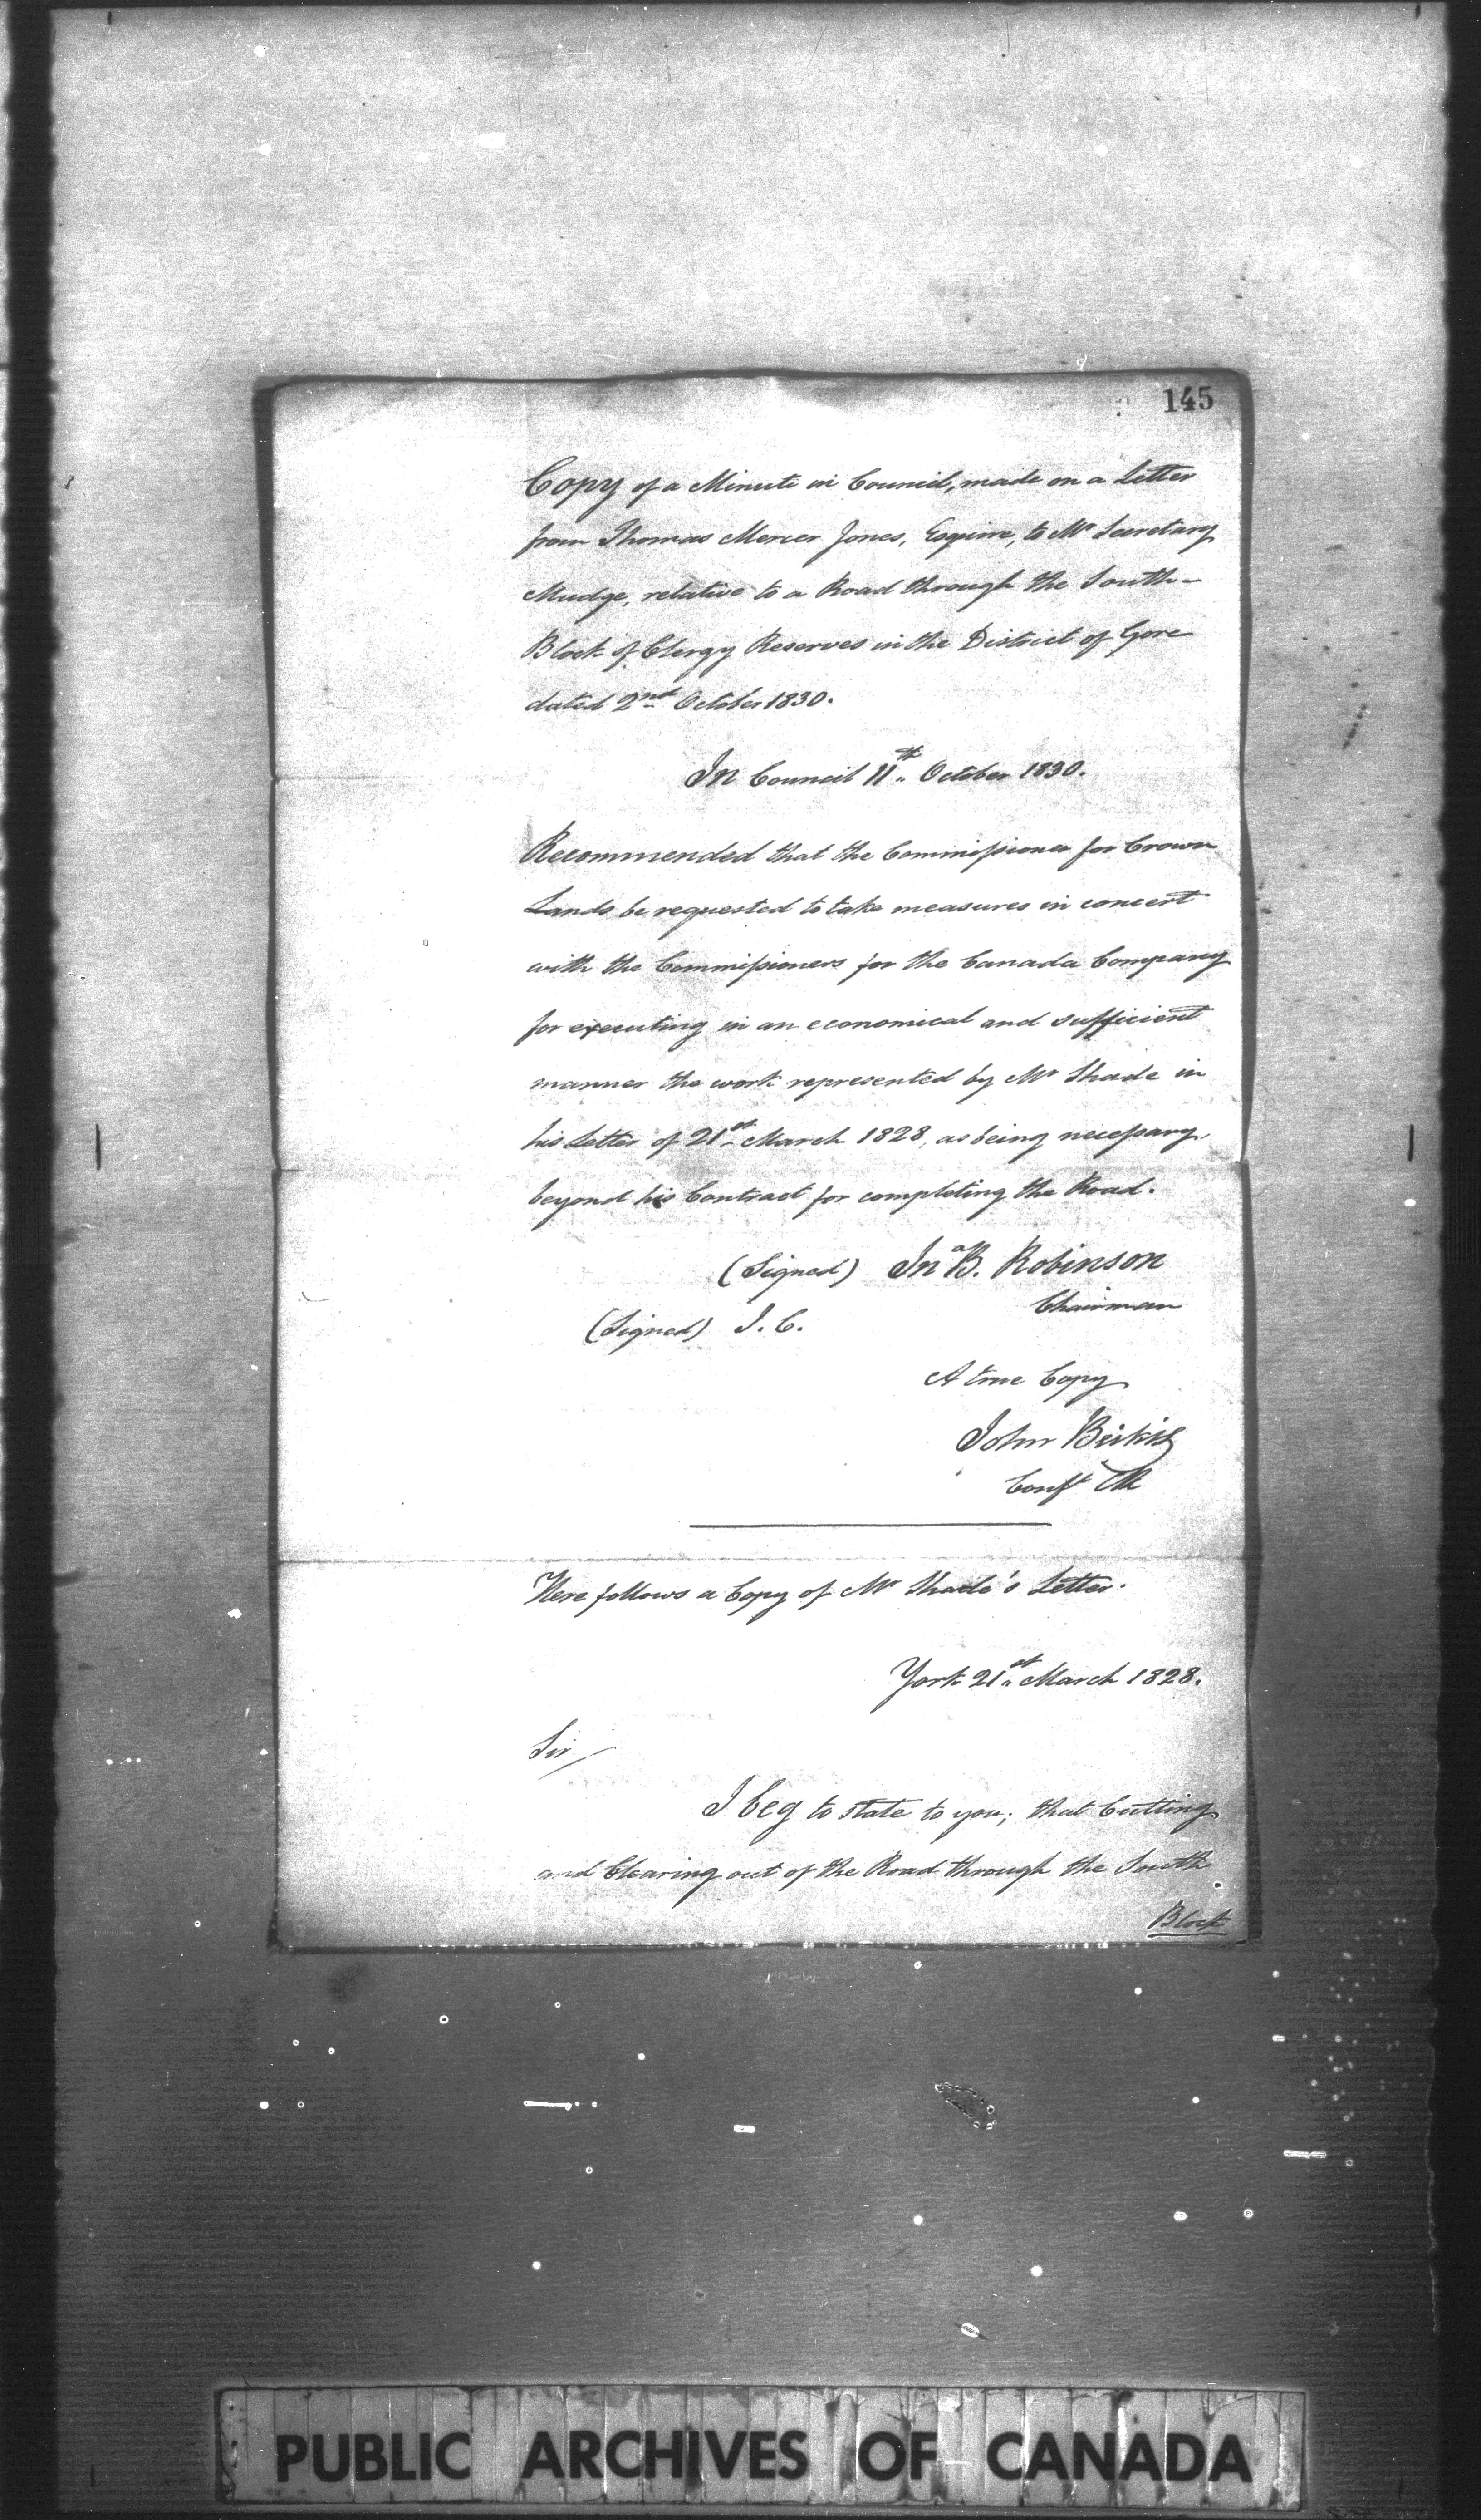 145
Copy of a Minute in Council, made on a Letter
from Thomas Mercer Jones, Esquire, to Mr Secretary
Mudge, relative to a Road through the South-
Block of Clergy Reserves in the District of Gore
dated 2nd October 1830.
In Council 11th October 1830.
Recommended that the Commissioner for Crown
Lands be requested to take measures in concert
with the Commissioners for the Canada Company
for executing in an economical and sufficient
manner the work represented by Mr Shade in
his Letter of 21st March 1828, as being necessary,
beyond his Contract for completing the Road.
(Signed) Jna B. Robinson
Chairman
(Signed) J. C.
A true Copy
John Beikie
Conf Clk
Here follows a Copy of Mr Shade's Letter.
York 21st March 1828.
Sir/
I beg to state to you; that Cutting
and Clearing out of the Road through the South
Block
PUBLIC ARCHIVES OF CANADA